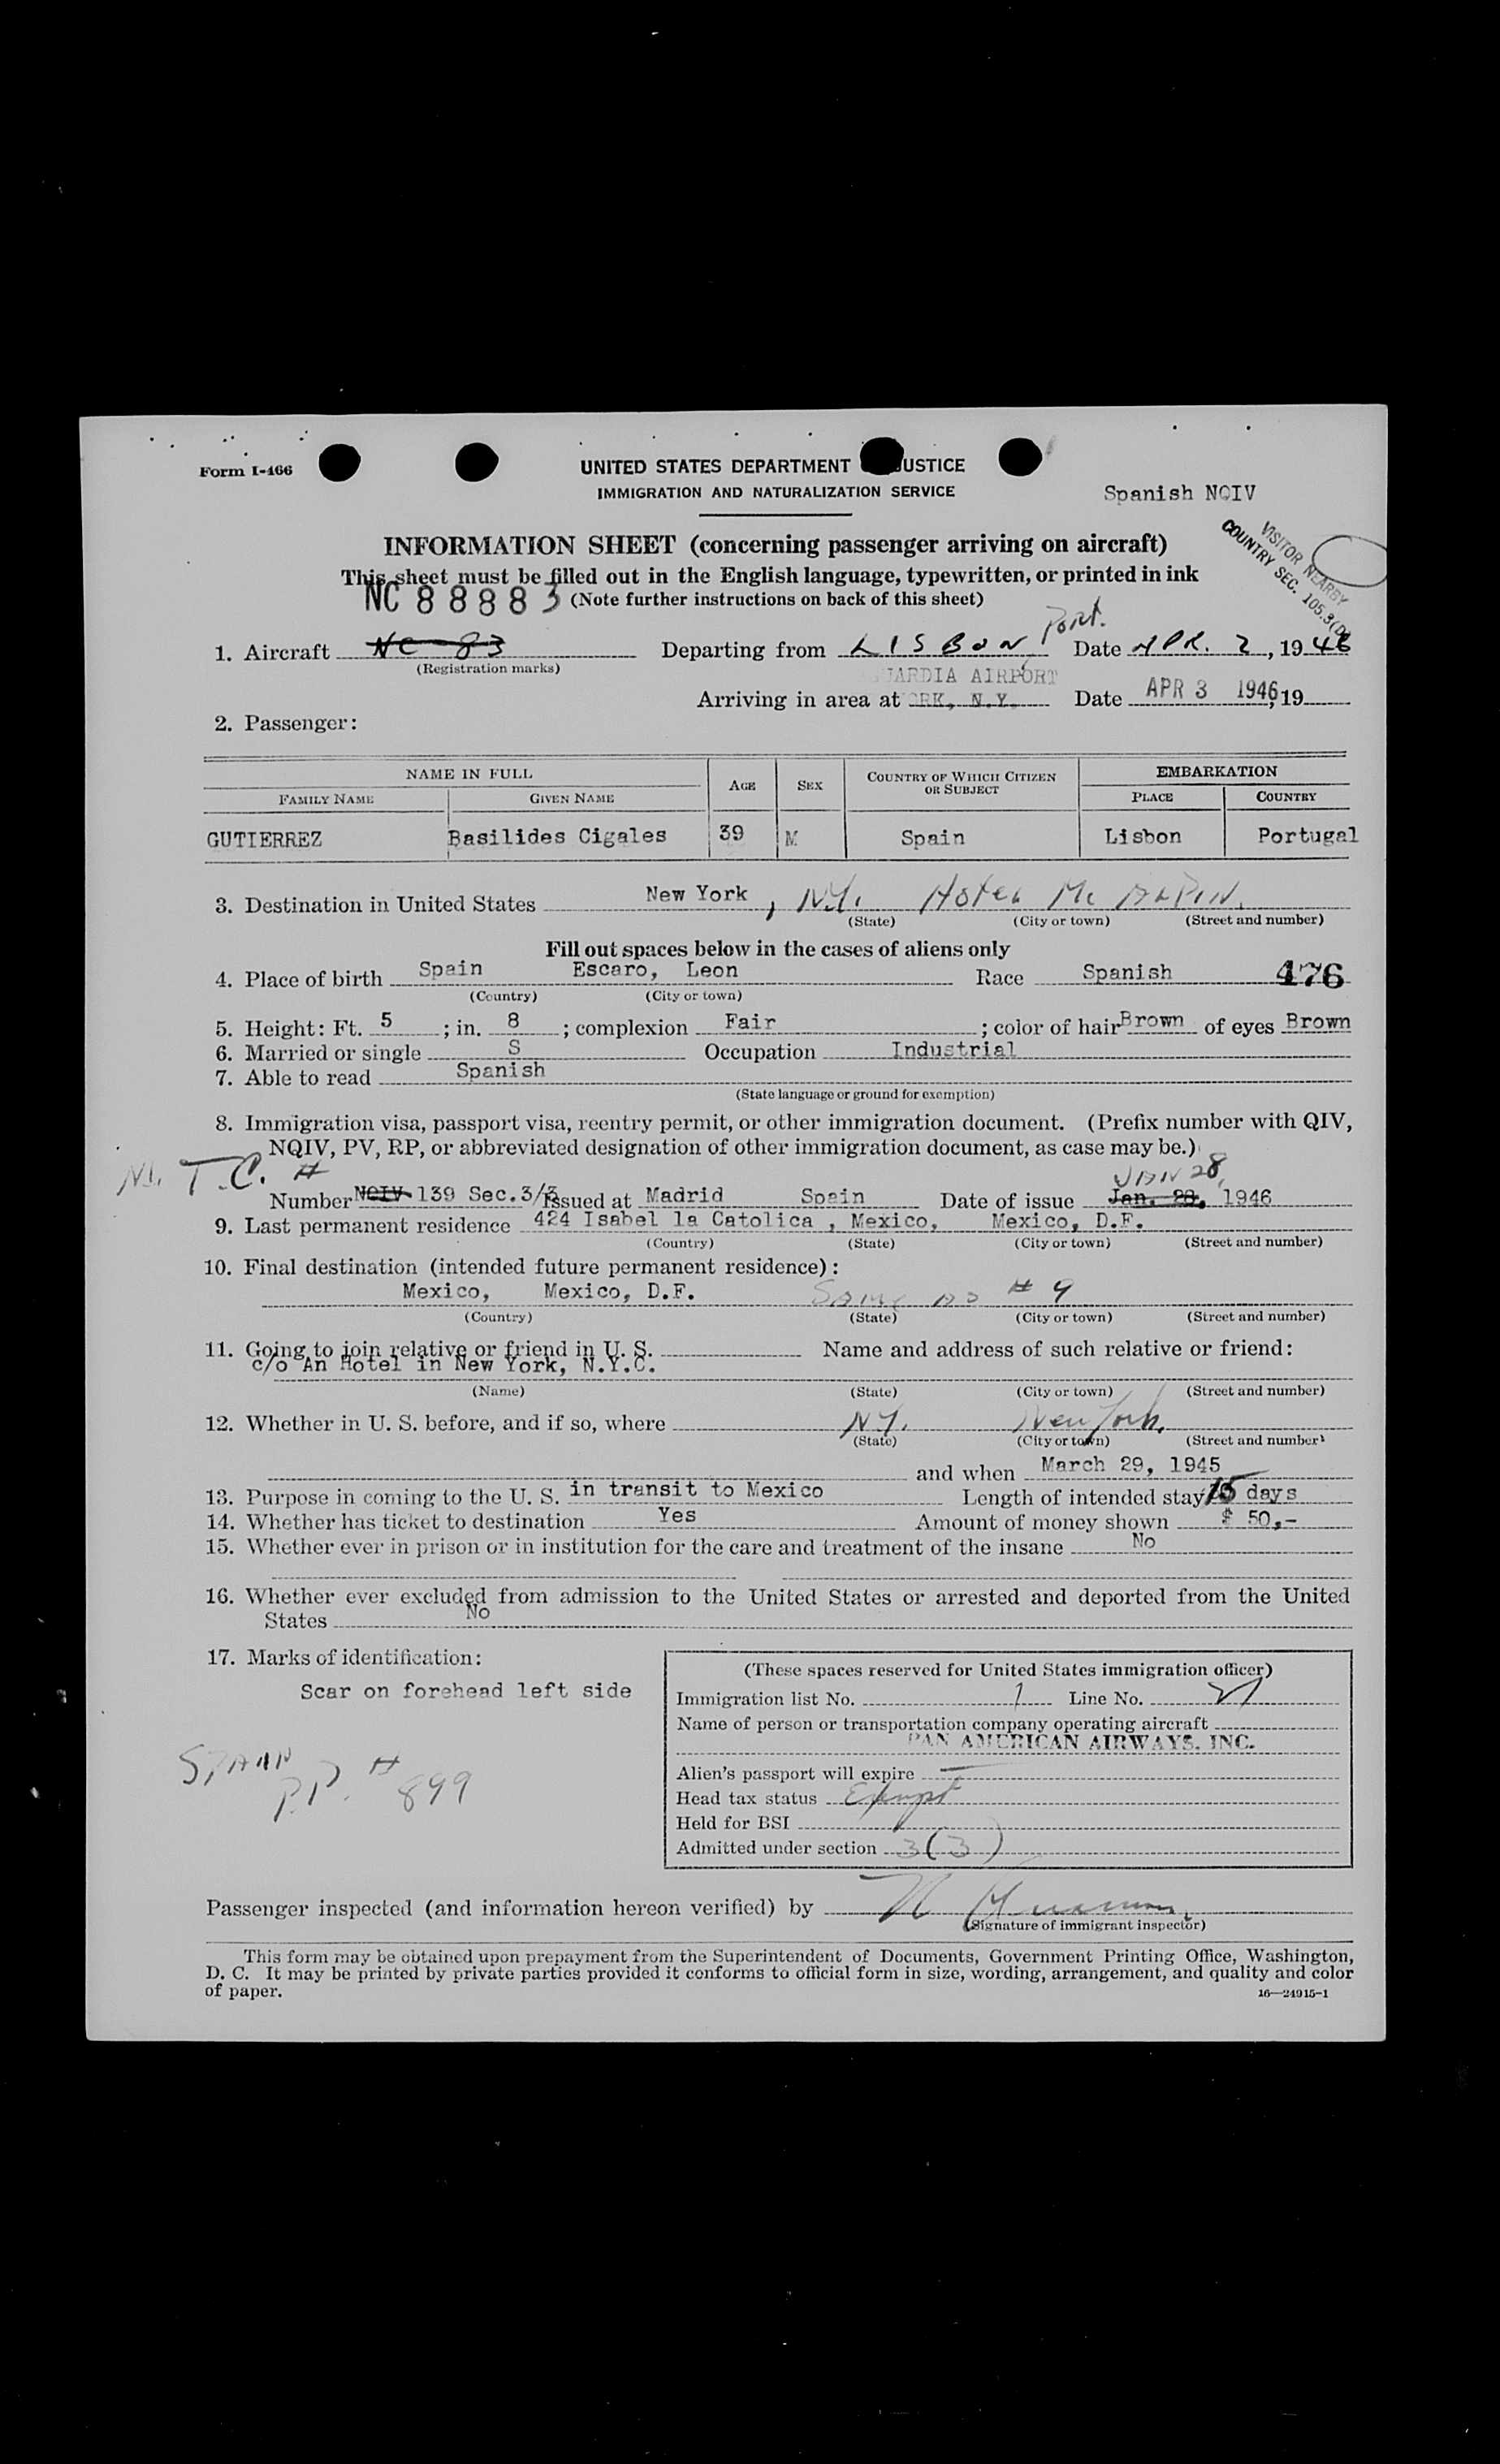 Form I-466
UNITED STATES DEPARTMENT JUSTICE
IMMIGRATION AND NATURALIZATION SERVICE
Spanish NQIV
VISITOR NEARBY
COUNTRY SEC. 105.3(D)
INFORMATION SHEET (concerning passenger arriving on aircraft)
This sheet must be filled out in the English language, typewritten, or printed in ink
NC 88883 (Note further instructions on back of this sheet)
1. Aircraft NC 83 Departing from LISBON, Port. Date APR. 2, 1946
(Registration marks)
ARDIA AIRPORT
Arriving in area at ORK, N.Y. Date APR 3 1946, 19
2. Passenger:
NAME IN FULL AGE SEX COUNTRY OF WHICH CITIZEN OR SUBJECT EMBARKATION
FAMILY NAME GIVEN NAME PLACE COUNTRY
GUTIERREZ Basilides Cigales 39 M Spain Lisbon Portugal
3. Destination in United States New York, N.Y. HOTEL Mc ALPIN.
(State) (City or town) (Street and number)
Fill out spaces below in the cases of aliens only
4. Place of birth Spain Escaro, Leon Race Spanish 476
(Country) (City or town)
5. Height: Ft. 5; in. 8; complexion Fair; color of hair Brown of eyes Brown
6. Married or single S Occupation Industrial
7. Able to read Spanish
(State language or ground for exemption)
8. Immigration visa, passport visa, reentry permit, or other immigration document. (Prefix number with QIV,
NQIV, PV, RP, or abbreviated designation of other immigration document, as case may be.)
T.C. # JAN 28,
Number NQIV 139 Sec.3/3 Issued at Madrid Spain Date of issue Jan. 28, 1946
9. Last permanent residence 424 Isabel la Catolica , Mexico, Mexico, D.F.
(Country) (State) (City or town) (Street and number)
10. Final destination (intended future permanent residence):
Mexico, Mexico, D.F. SAME AS # 9
(Country) (State) (City or town) (Street and number)
11. Going to join relative or friend in U. S. Name and address of such relative or friend:
c/o An Hotel in New York, N.Y.C.
(Name) (State) (City or town) (Street and number)
12. Whether in U. S. before, and if so, where N.Y. New York.
(State) (City or town) (Street and number)
and when March 29, 1945
13. Purpose in coming to the U. S. in transit to Mexico Length of intended stay 15 days
14. Whether has ticket to destination Yes Amount of money shown $ 50,-
15. Whether ever in prison or in institution for the care and treatment of the insane No
16. Whether ever excluded from admission to the United States or arrested and deported from the United
States No
17. Marks of identification:
Scar on forehead left side
P.P. # 899
(These spaces reserved for United States immigration officer)
Immigration list No. 1 Line No. 21
Name of person or transportation company operating aircraft
PAN AMERICAN AIRWAYS, INC.
Alien's passport will expire
Head tax status Exempt
Held for BSI
Admitted under section 3(3)
Passenger inspected (and information hereon verified) by
(Signature of immigrant inspector)
This form may be obtained upon prepayment from the Superintendent of Documents, Government Printing Office, Washington,
D. C. It may be printed by private parties provided it conforms to official form in size, wording, arrangement, and quality and color
of paper.
16—24915-1